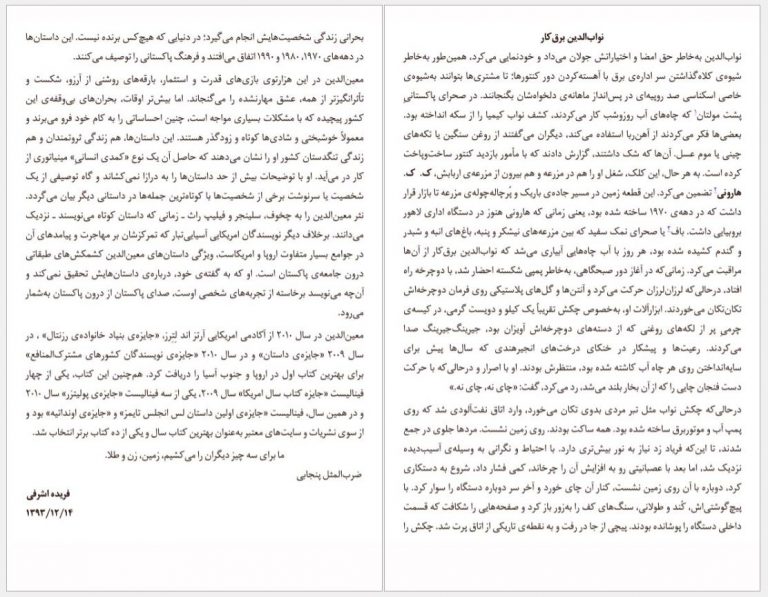 بحرانی زندگی شخصیت‌هایش انجام می‌گیرد؛ در دنیایی که هیچ‌کس برنده نیست. این داستان‌ها
در دهه‌های ۱۹۷۰، ۱۹۸۰ و ۱۹۹۰ اتفاق می‌افتند و فرهنگ پاکستانی را توصیف می‌کنند.
معین‌الدین در این هزارتوی بازی‌های قدرت و استثمار، بارقه‌های روشنی از آرزو، شکست و
تأثرانگیزتر از همه، عشق مهارنشده را می‌گنجاند. اما بیش‌تر اوقات، بحران‌های بی‌وقفه‌ی این
کشور پیچیده که با مشکلات بسیاری مواجه است، چنین احساساتی را به کام خود فرو می‌برند و
معمولاً خوشبختی و شادی‌ها کوتاه و زودگذر هستند. این داستان‌ها، هم زندگی ثروتمندان و هم
زندگی تنگدستان کشور او را نشان می‌دهند که حاصل آن یک نوع «کمدی انسانی» مینیاتوری از
کار در می‌آید. او با توضیحات بیش از حد داستان‌ها را به درازا نمی‌کشاند و گاه توصیفی از یک
شخصیت یا سرنوشت برخی از شخصیت‌ها با کوتاه‌ترین جمله‌ها در داستانی دیگر بیان می‌گردد.
نثر معین‌الدین را به چخوف، سلینجر و فیلیپ راث ـ زمانی که داستان کوتاه می‌نویسند ـ نزدیک
می‌دانند. برخلاف دیگر نویسندگان امریکایی آسیایی‌تبار که تمرکزشان بر مهاجرت و پیامدهای آن
در جوامع بسیار متفاوت اروپا و امریکاست، ویژگی داستان‌های معین‌الدین کشمکش‌های طبقاتی
درون جامعه‌ی پاکستان است. او که به گفته‌ی خود، درباره‌ی داستان‌هایش تحقیق نمی‌کند و
آن‌چه می‌نویسد برخاسته از تجربه‌های شخصی اوست، صدای پاکستان از درون پاکستان به‌شمار
می‌رود.
معین‌الدین در سال ۲۰۱۰ از آکادمی امریکایی آرتز اند لِتِرز، «جایزه‌ی بنیاد خانواده‌ی رزنتال» ، در
سال ۲۰۰۹ «جایزه‌ی داستان» و در سال ۲۰۱۰ «جایزه‌ی نویسندگان کشورهای مشترک‌المنافع»
برای بهترین کتاب اول در اروپا و جنوب آسیا را دریافت کرد. هم‌چنین این کتاب، یکی از چهار
فینالیست «جایزه کتاب سال امریکا» ۲۰۰۹، یکی از سه فینالیست «جایزه‌ی پولیتزر» سال ۲۰۱۰
و در همین سال، فینالیست «جایزه‌ی اولین داستان لس انجلس تایمز» و «جایزه‌ی اوندانیه» بود و
از سوی نشریات و سایت‌های معتبر به‌عنوان بهترین کتاب سال و یکی از ده کتاب برتر انتخاب شد.
ما برای سه چیز دیگران را می‌کشیم، زمین، زن و طلا.
ضرب‌المثل پنجابی
فریده اشرفی
۱۳۹۳/۱۲/۱۴
نواب‌الدین برق‌کار
نواب‌الدین به‌خاطر حق امضا و اختیاراتش جولان می‌داد و خودنمایی می‌کرد، همین‌طور به‌خاطر
شیوه‌ی کلاه‌گذاشتن سر اداره‌ی برق با آهسته‌کردن دور کنتورها؛ تا مشتری‌ها بتوانند به‌شیوه‌ی
خاصی اسکناسی صد روپیه‌ای در پس‌انداز ماهانه‌ی دلخواه‌شان بگنجانند. در صحرای پاکستانیِ
پشت مولتان۱ که چاه‌های آب روزوشب کار می‌کردند، کشف نواب کیمیا را از سکه انداخته بود.
بعضی‌ها فکر می‌کردند از آهن‌ربا استفاده می‌کند، دیگران می‌گفتند از روغن سنگین یا تکه‌های
چینی یا موم عسل. آن‌ها که شک داشتند، گزارش دادند که با مأمور بازدید کنتور ساخت‌وپاخت
کرده است. به هر حال، این کلک، شغل او را هم در مزرعه و هم بیرون از مزرعه‌ی اربابش، ک. ک.
هارونی۲ تضمین می‌کرد. این قطعه زمین در مسیر جاده‌ی باریک و پُرچاله‌چوله‌ی مزرعه تا بازار قرار
داشت که در دهه‌ی ۱۹۷۰ ساخته شده بود، یعنی زمانی که هارونی هنوز در دستگاه اداری لاهور
بروبیایی داشت. باف۳ یا صحرای نمک سفید که بین مزرعه‌های نیشکر و پنبه، باغ‌های انبه و شبدر
و گندم کشیده شده بود، هر روز با آب چاه‌هایی آبیاری می‌شد که نواب‌الدین برق‌کار از آن‌ها
مراقبت می‌کرد. زمانی‌که در آغاز دور صبحگاهی، به‌خاطر پمپی شکسته احضار شد، با دوچرخه راه
افتاد، درحالی‌که لرزان‌لرزان حرکت می‌کرد و آنتن‌ها و گل‌های پلاستیکی روی فرمان دوچرخه‌اش
تکان‌تکان می‌خوردند. ابزارآلات او، به‌خصوص چکش تقریباً یک کیلو و دویست گرمی، در کیسه‌ی
چرمیِ پر از لکه‌های روغنی که از دسته‌های دوچرخه‌اش آویزان بود، جیرینگ‌جیرینگ صدا
می‌کردند. رعیت‌ها و پیشکار در خنکای درخت‌های انجیرهندی که سال‌ها پیش برای
سایه‌انداختن روی هر چاه آب کاشته شده بود، منتظرش بودند. او با اصرار و درحالی‌که با حرکت
دست فنجان چایی را که از آن بخار بلند می‌شد، رد می‌کرد، گفت: «چای نه، چای نه.»
درحالی‌که چکش نواب مثل تبر مردی بدوی تکان می‌خورد، وارد اتاق نفت‌آلودی شد که روی
پمپ آب و موتوربرق ساخته شده بود. همه ساکت بودند. روی زمین نشست. مردها جلوی در جمع
شدند، تا این‌که فریاد زد نیاز به نور بیش‌تری دارد. با احتیاط و نگرانی به وسیله‌ی آسیب‌دیده
نزدیک شد، اما بعد با عصبانیتی رو به افزایش آن را چرخاند، کمی فشار داد، شروع به دستکاری
کرد، دوباره با آن روی زمین نشست، کنار آن چای خورد و آخر سر دوباره دستگاه را سوار کرد. با
پیچ‌گوشتی‌اش، کُند و طولانی، سنگ‌های کف را به‌زور باز کرد و صفحه‌هایی را شکافت که قسمت
داخلی دستگاه را پوشانده بودند. پیچی از جا در رفت و به نقطه‌ی تاریکی از اتاق پرت شد. چکش را